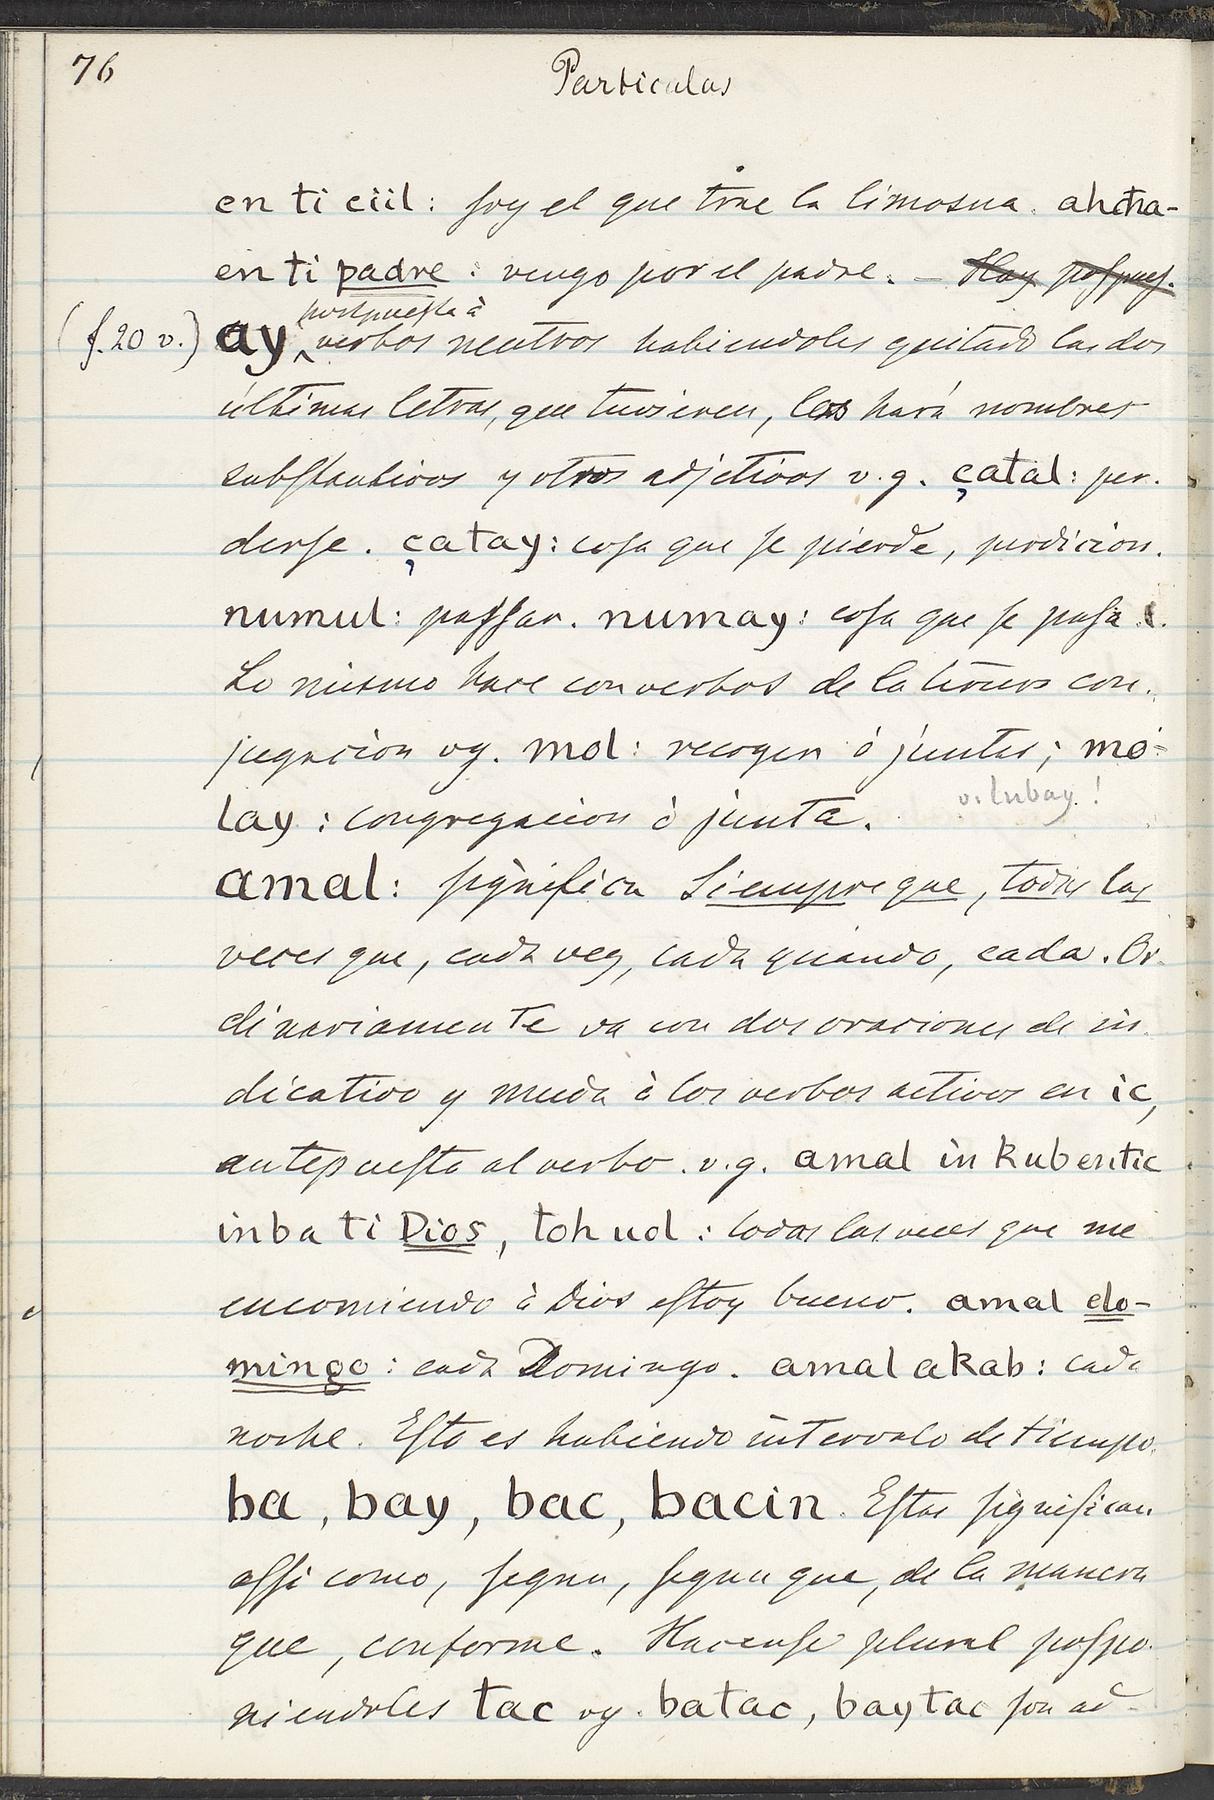 76
Particulas
en ti ciil: soy el que trae la limosna. ahcħa-
en ti padre: vengo por el padre. – Hay pospues.
postpuesta à
(f. 20 v.) ay verbos neutros habiendoles quitado las dos
últimas letras, que tuvieren, los hará nombres
substantivos y otros adjetivos v.g. çatal: per-
derse. çatay: cosa que se pierde, perdicion.
numul: passar. numay: cosa que se pasa.
Lo mismo hace con verbos de la tercera con-
jugacion vg. mol: recoger ó juntar; mo-
v. lubay!
lay: congregacion ó junta.
amal: significa Siempre que, todas las
veces que, cada vez, cada quando, cada. Or-
dinariamente va con dos oraciones de in-
dicativo y muda à los verbos activos en ic,
antepuesta al verbo. v.g. amal in kubentic
inba ti Dios, toh uol: todas las veces que me
encomiendo à Dios estoy bueno. amal do-
mingo: cada Domingo. amal akab: cada
noche. Esto es habiendo intervalo de tiempo.
ba, bay, bac, bacin. Estas significan
assi como, segun, segun que, de la manera
que, conforme. Hacense plural pospo-
niendoles tac vg. batac, baytac son ad-